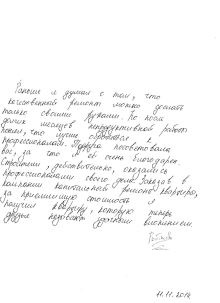 Раньше я думал о том, что
качественный ремонт можно делать
только своими руками. Но после
долгих месяцев непродуктивной работы
понял, что лучше обратиться к
профессионалам. Подруга посоветовала
вас, за что я ей очень благодарен.
Строители, действительно, оказались
профессионалами своего дела. Заказав в
компании капитальный ремонт квартиры,
за приемлемую стоимость я
получил квартиру, которую теперь
друзья называют удачным
11.11.2014